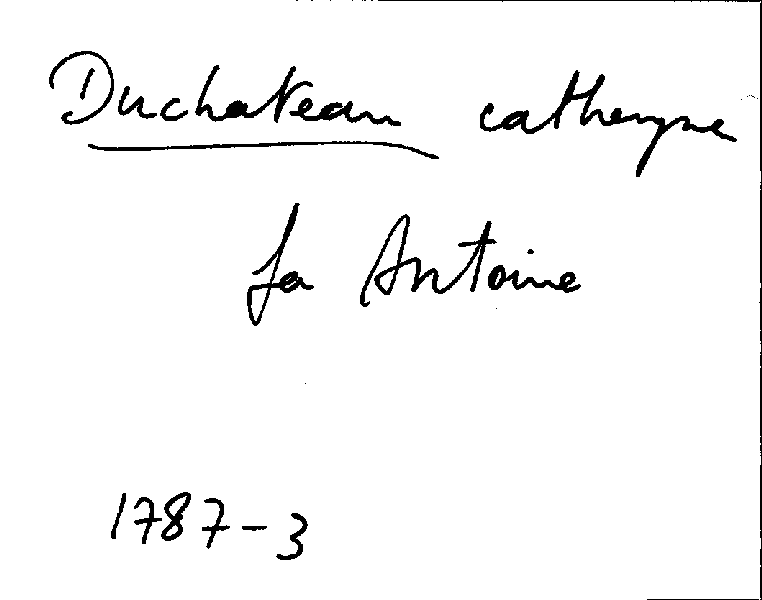 Duchateau catheryne
fa Antoine
1787-3